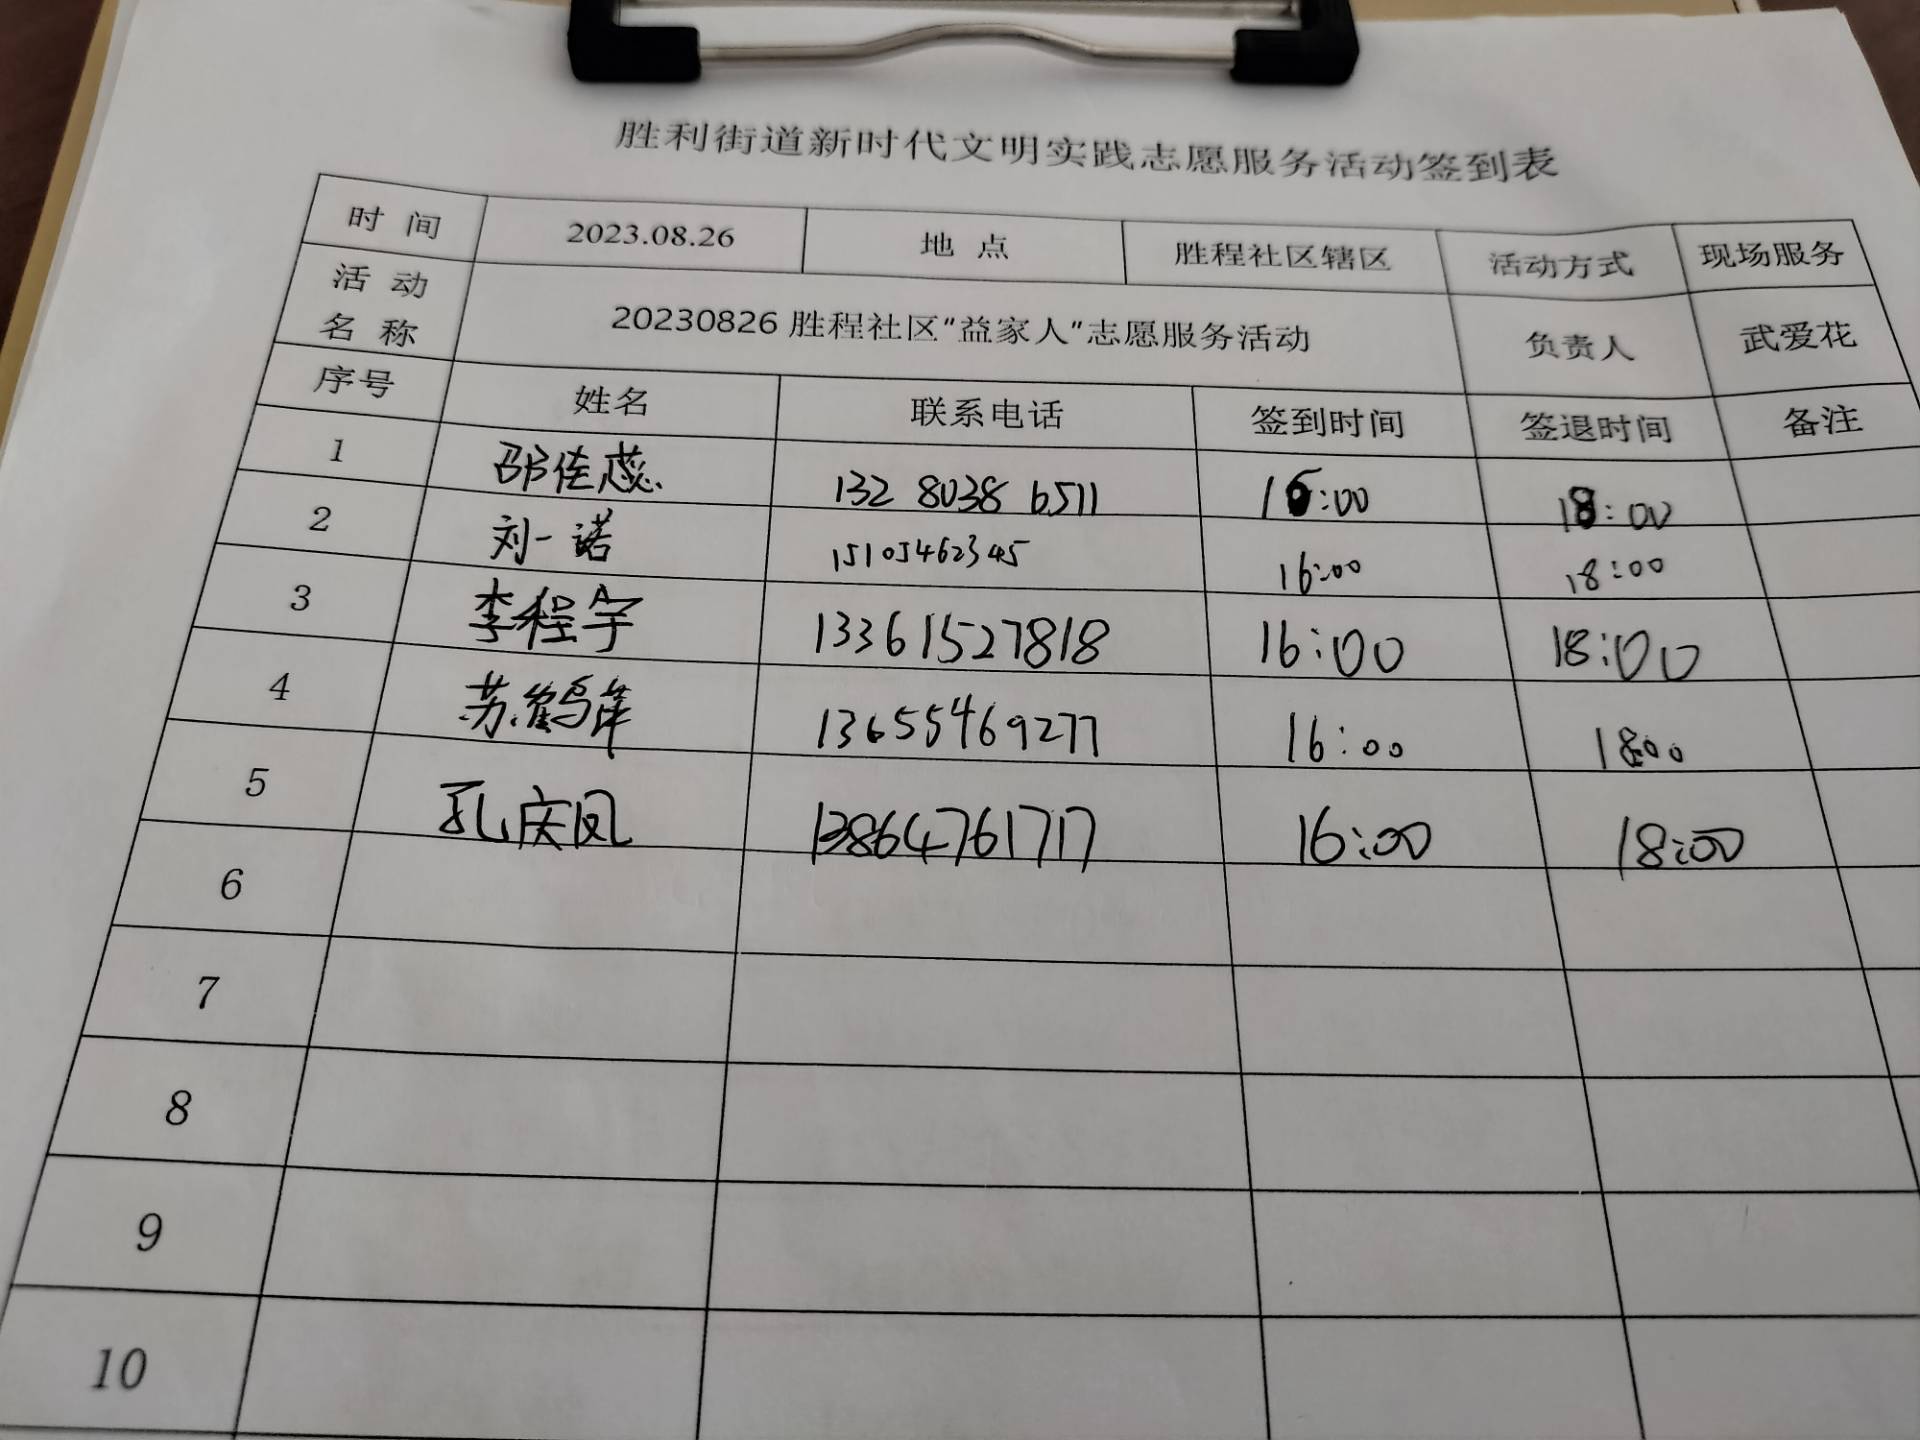 胜利街道新时代文明实践志愿服务活动签到表
时 间 2023.08.26 地 点 胜程社区辖区 活动方式 现场服务
活 动
名 称 20230826胜程社区“益家人”志愿服务活动 负责人 武爱花
序号 姓名 联系电话 签到时间 签退时间 备注
1 邵佳蕊 132 8038 6511 16:00 18:00
2 刘一诺 15105462345 16:00 18:00
3 李程宇 13361527818 16:00 18:00
4 苏鹤萍 13655469277 16:00 18:00
5 孔庆凤 13864761717 16:00 18:00
6
7
8
9
10